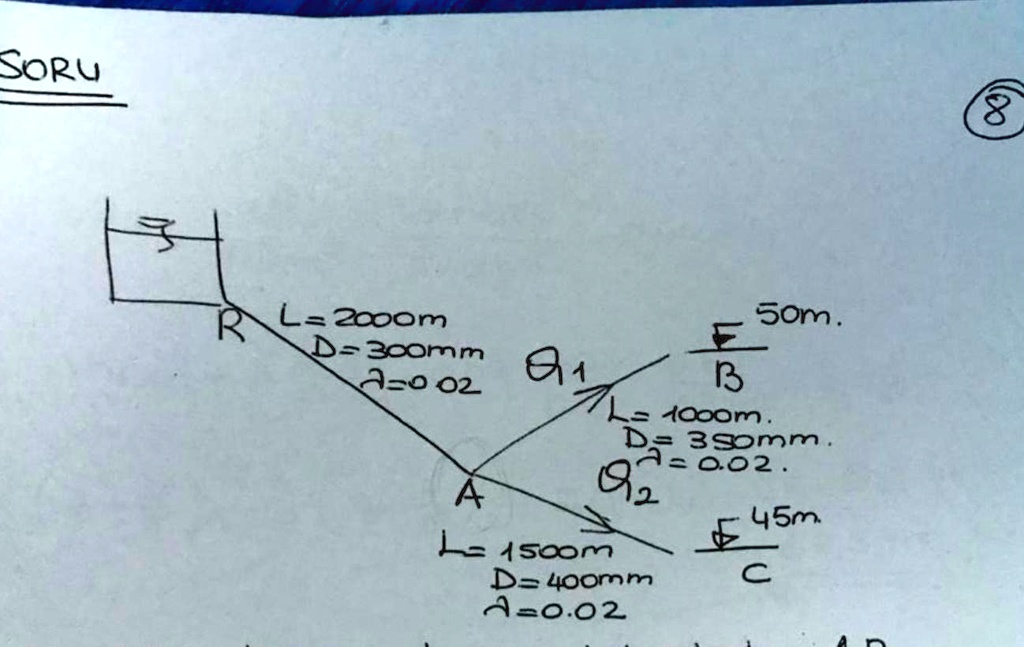 SORU
8
R
L=2000m
D=300mm
λ=0.02
Q1
50m.
B
L= 1000m.
D= 350mm.
λ=0.02.
A
Q2
45m.
C
L= 1500m
D=400mm
λ=0.02